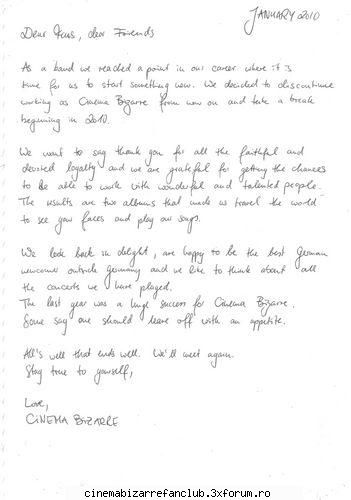 JANUARY 2010
Dear Fans, dear Friends
As a band we reached a point in our career where it is
time for us to start something new. We decided to discontinue
working as Cinema Bizarre from now on and take a break
beginning in 2010.
We want to say thank you for all the faithful and
devoted loyalty and we are grateful for getting the chances
to be able to work with wonderful and talented people.
The results are two albums that made us travel the world
to see your faces and play our songs.
We look back in delight, are happy to be the best German
newcomer outside Germany and we like to think about all
the concerts we have played.
The last year was a huge success for Cinema Bizarre.
Some say one should leave off with an appetite.
All's well that ends well. We'll meet again.
Stay true to yourself,
Love,
CINEMA BIZARRE
cinemabizarrefanclub.3xforum.ro